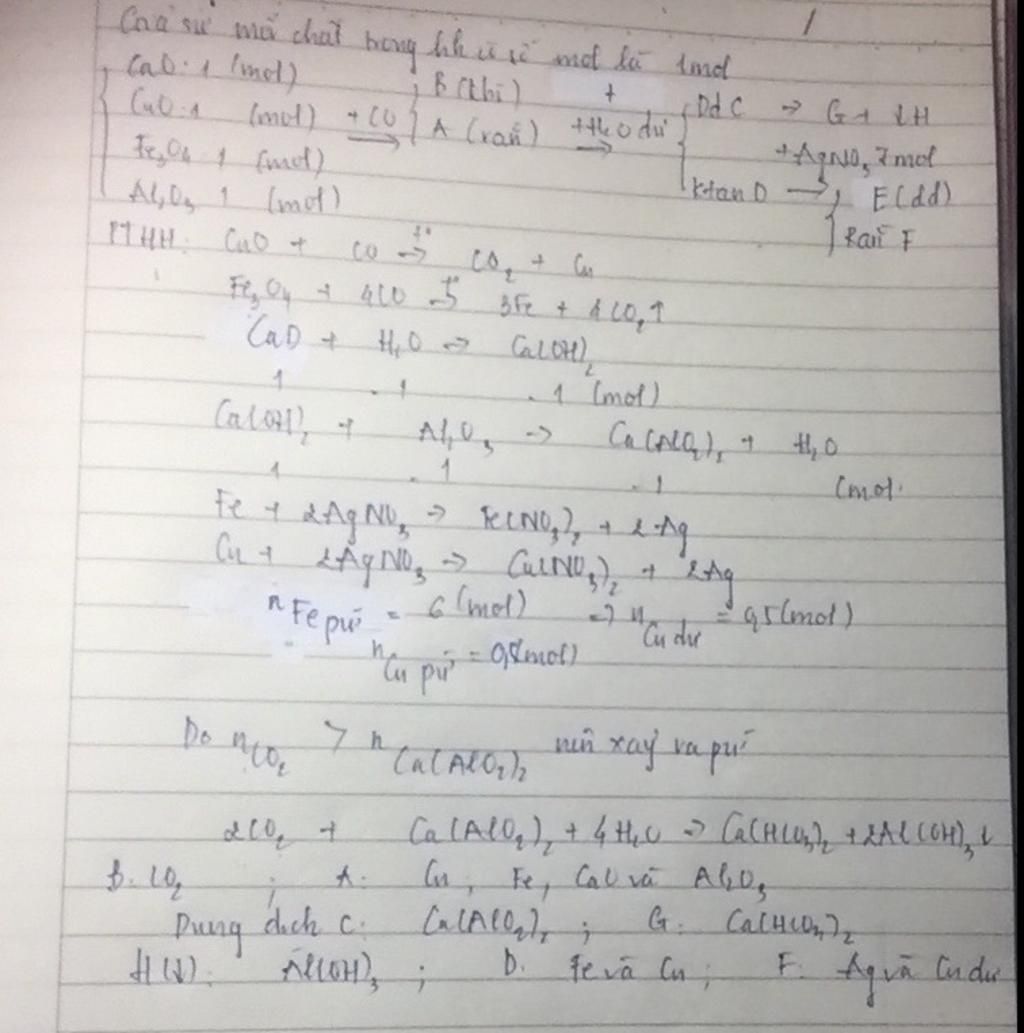 1
Giả sử mỗi chất trong hh có số mol là 1mol
CaO: 1 (mol) B (khí) +
CuO: 1 (mol) +CO → A (rắn) +H₂O dư → Dd C → G + ↓H
Fe₃O₄ 1 (mol) +AgNO₃ 7mol
Al₂O₃ 1 (mol) K tan D → E (dd)
PTHH: CuO + CO t°→ CO₂ + Cu Rắn F
Fe₃O₄ + 4CO t°→ 3Fe + 4CO₂↑
CaO + H₂O → Ca(OH)₂
1 . 1 . 1 (mol)
Ca(OH)₂ + Al₂O₃ → Ca(AlO₂)₂ + H₂O
1 . 1 . 1 (mol.
Fe + 2AgNO₃ → Fe(NO₃)₂ + 2Ag
Cu + 2AgNO₃ → Cu(NO₃)₂ + 2Ag
n Fe pứ = 6 (mol) => n Cu dư = 0,5 (mol)
n Cu pứ = 0,5(mol)
Do n CO₂ > n Ca(AlO₂)₂ nên xảy ra pứ
2CO₂ + Ca(AlO₂)₂ + 4H₂O → Ca(HCO₃)₂ + 2Al(OH)₃↓
B. CO₂ ; A: Cu, Fe, CaO và Al₂O₃
Dung dịch C: Ca(AlO₂)₂ ; G: Ca(HCO₃)₂
H(↓): Al(OH)₃ ; D. Fe và Cu ; F. Ag và Cu dư